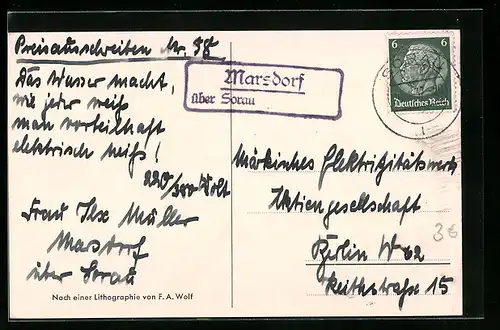 Preisausschreiben Nr. 38
Das Wasser macht,
wie jeder weiß
man vorteilhaft
elektrisch heiß!
220/380 Volt
Frau Ilse Müller
Marsdorf
über Sorau
Nach einer Lithographie von F. A. Wolf
Marsdorf
über Sorau
6 6
Deutsches Reich
1
Märkisches Elektrizitätswerk
Aktiengesellschaft
Berlin W 62
Keithstraße 15
3€